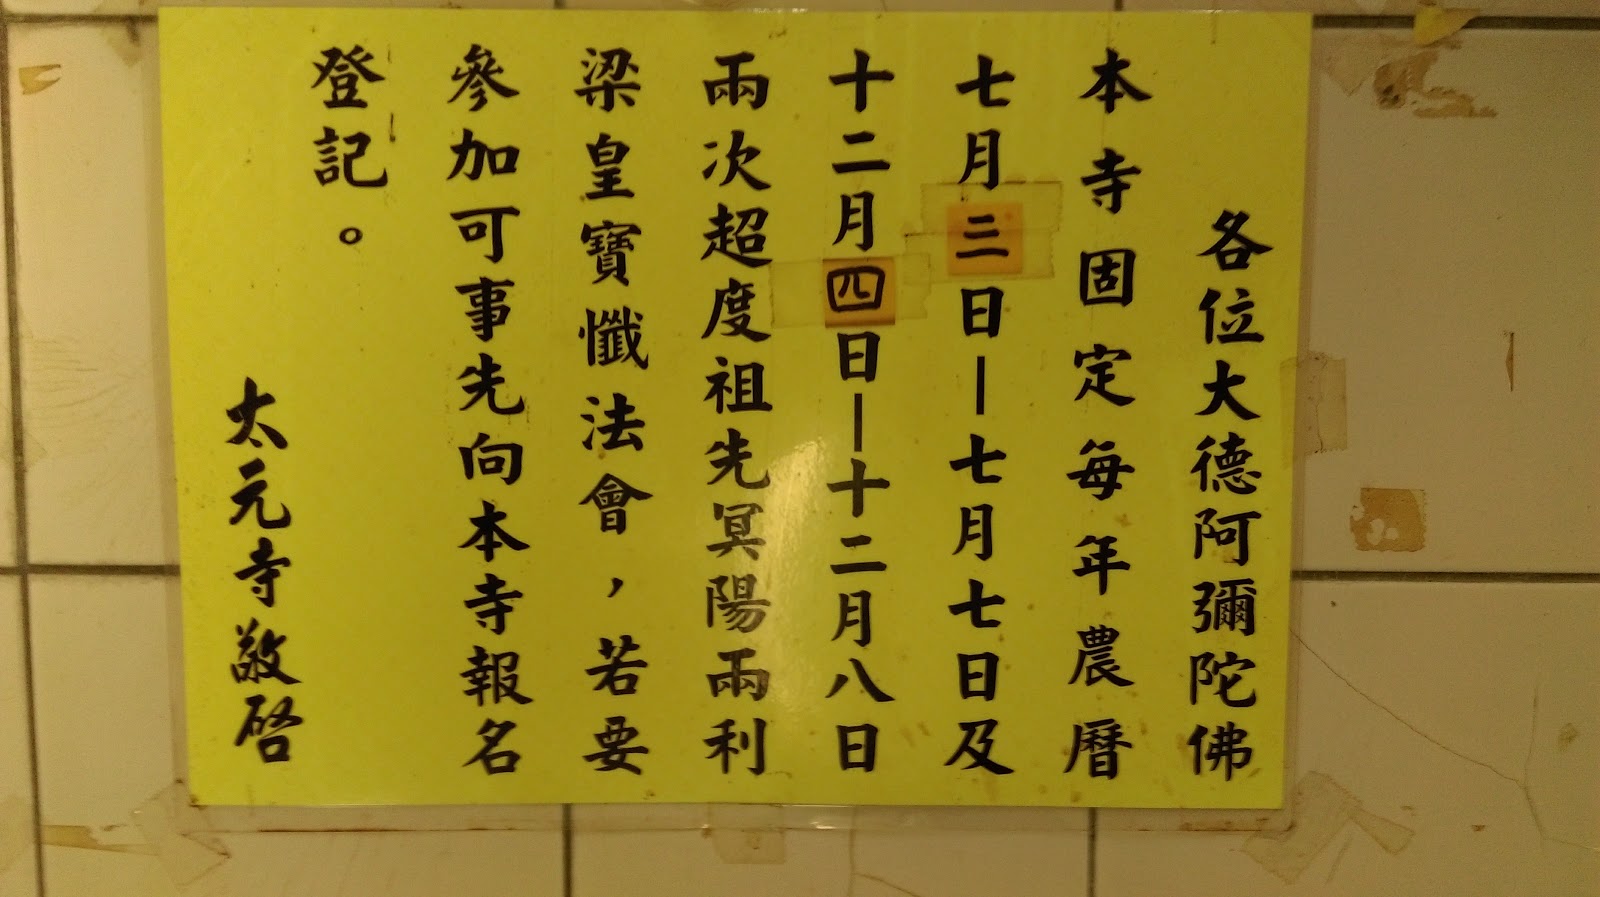 各位大德阿彌陀佛
本寺固定每年農曆
七月三日－七月七日及
十二月四日－十二月八日
兩次超度祖先冥陽兩利
梁皇寶懺法會，若要
參加可事先向本寺報名
登記。
太元寺敬啓